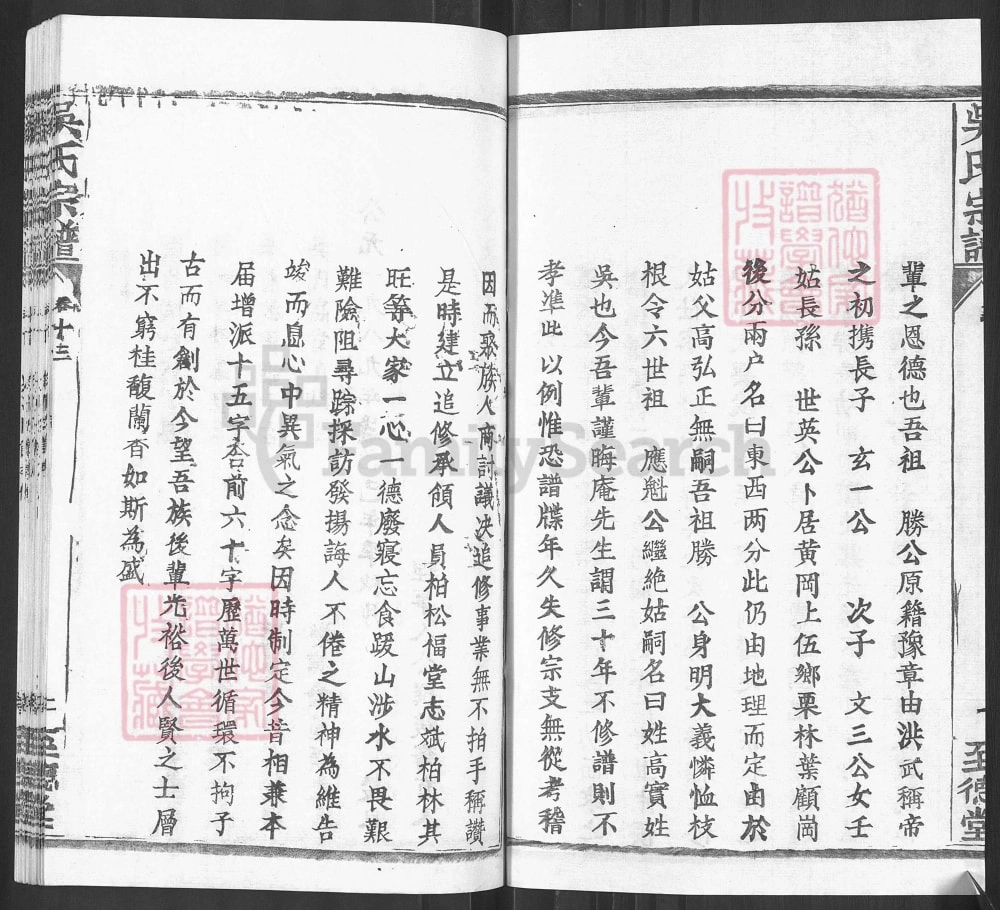 吳氏宗譜
至德堂
輩之恩德也吾祖 勝公原籍豫章由洪武稱帝
之初携長子 玄一公 次子 文三公女壬
姑長孫 世英公卜居黄岡上伍鄉栗林葉顧崗
後分兩户名曰東西两分此仍由地理而定由於
姑父高弘正無嗣吾祖勝 公身明大義憐恤枝
根令六世祖 應魁公繼絶姑嗣名曰姓高實姓
吳也今吾輩謹晦庵先生謂三十年不修譜則不
孝准此 以例惟恐譜牒年久失修宗支無從考稽
因而聚族人商討議决追修事業無不拍手稱讚
是時建立追修承領人員柏松福堂志斌柏林其
旺等大家一心一德廢寢忘食踐山涉水不畏艱
難險阻尋踪探訪發揚誨人不倦之精神為維告
竣而息心中異氣之念矣因時制定今昔相兼本
届增派十五字杏前六十字歷萬世循環不拘子
古而有創於今望吾族後輩光裕後人賢之士層
出不窮桂馥蘭香如斯為盛
吳氏宗譜
卷十三
FamilySearch